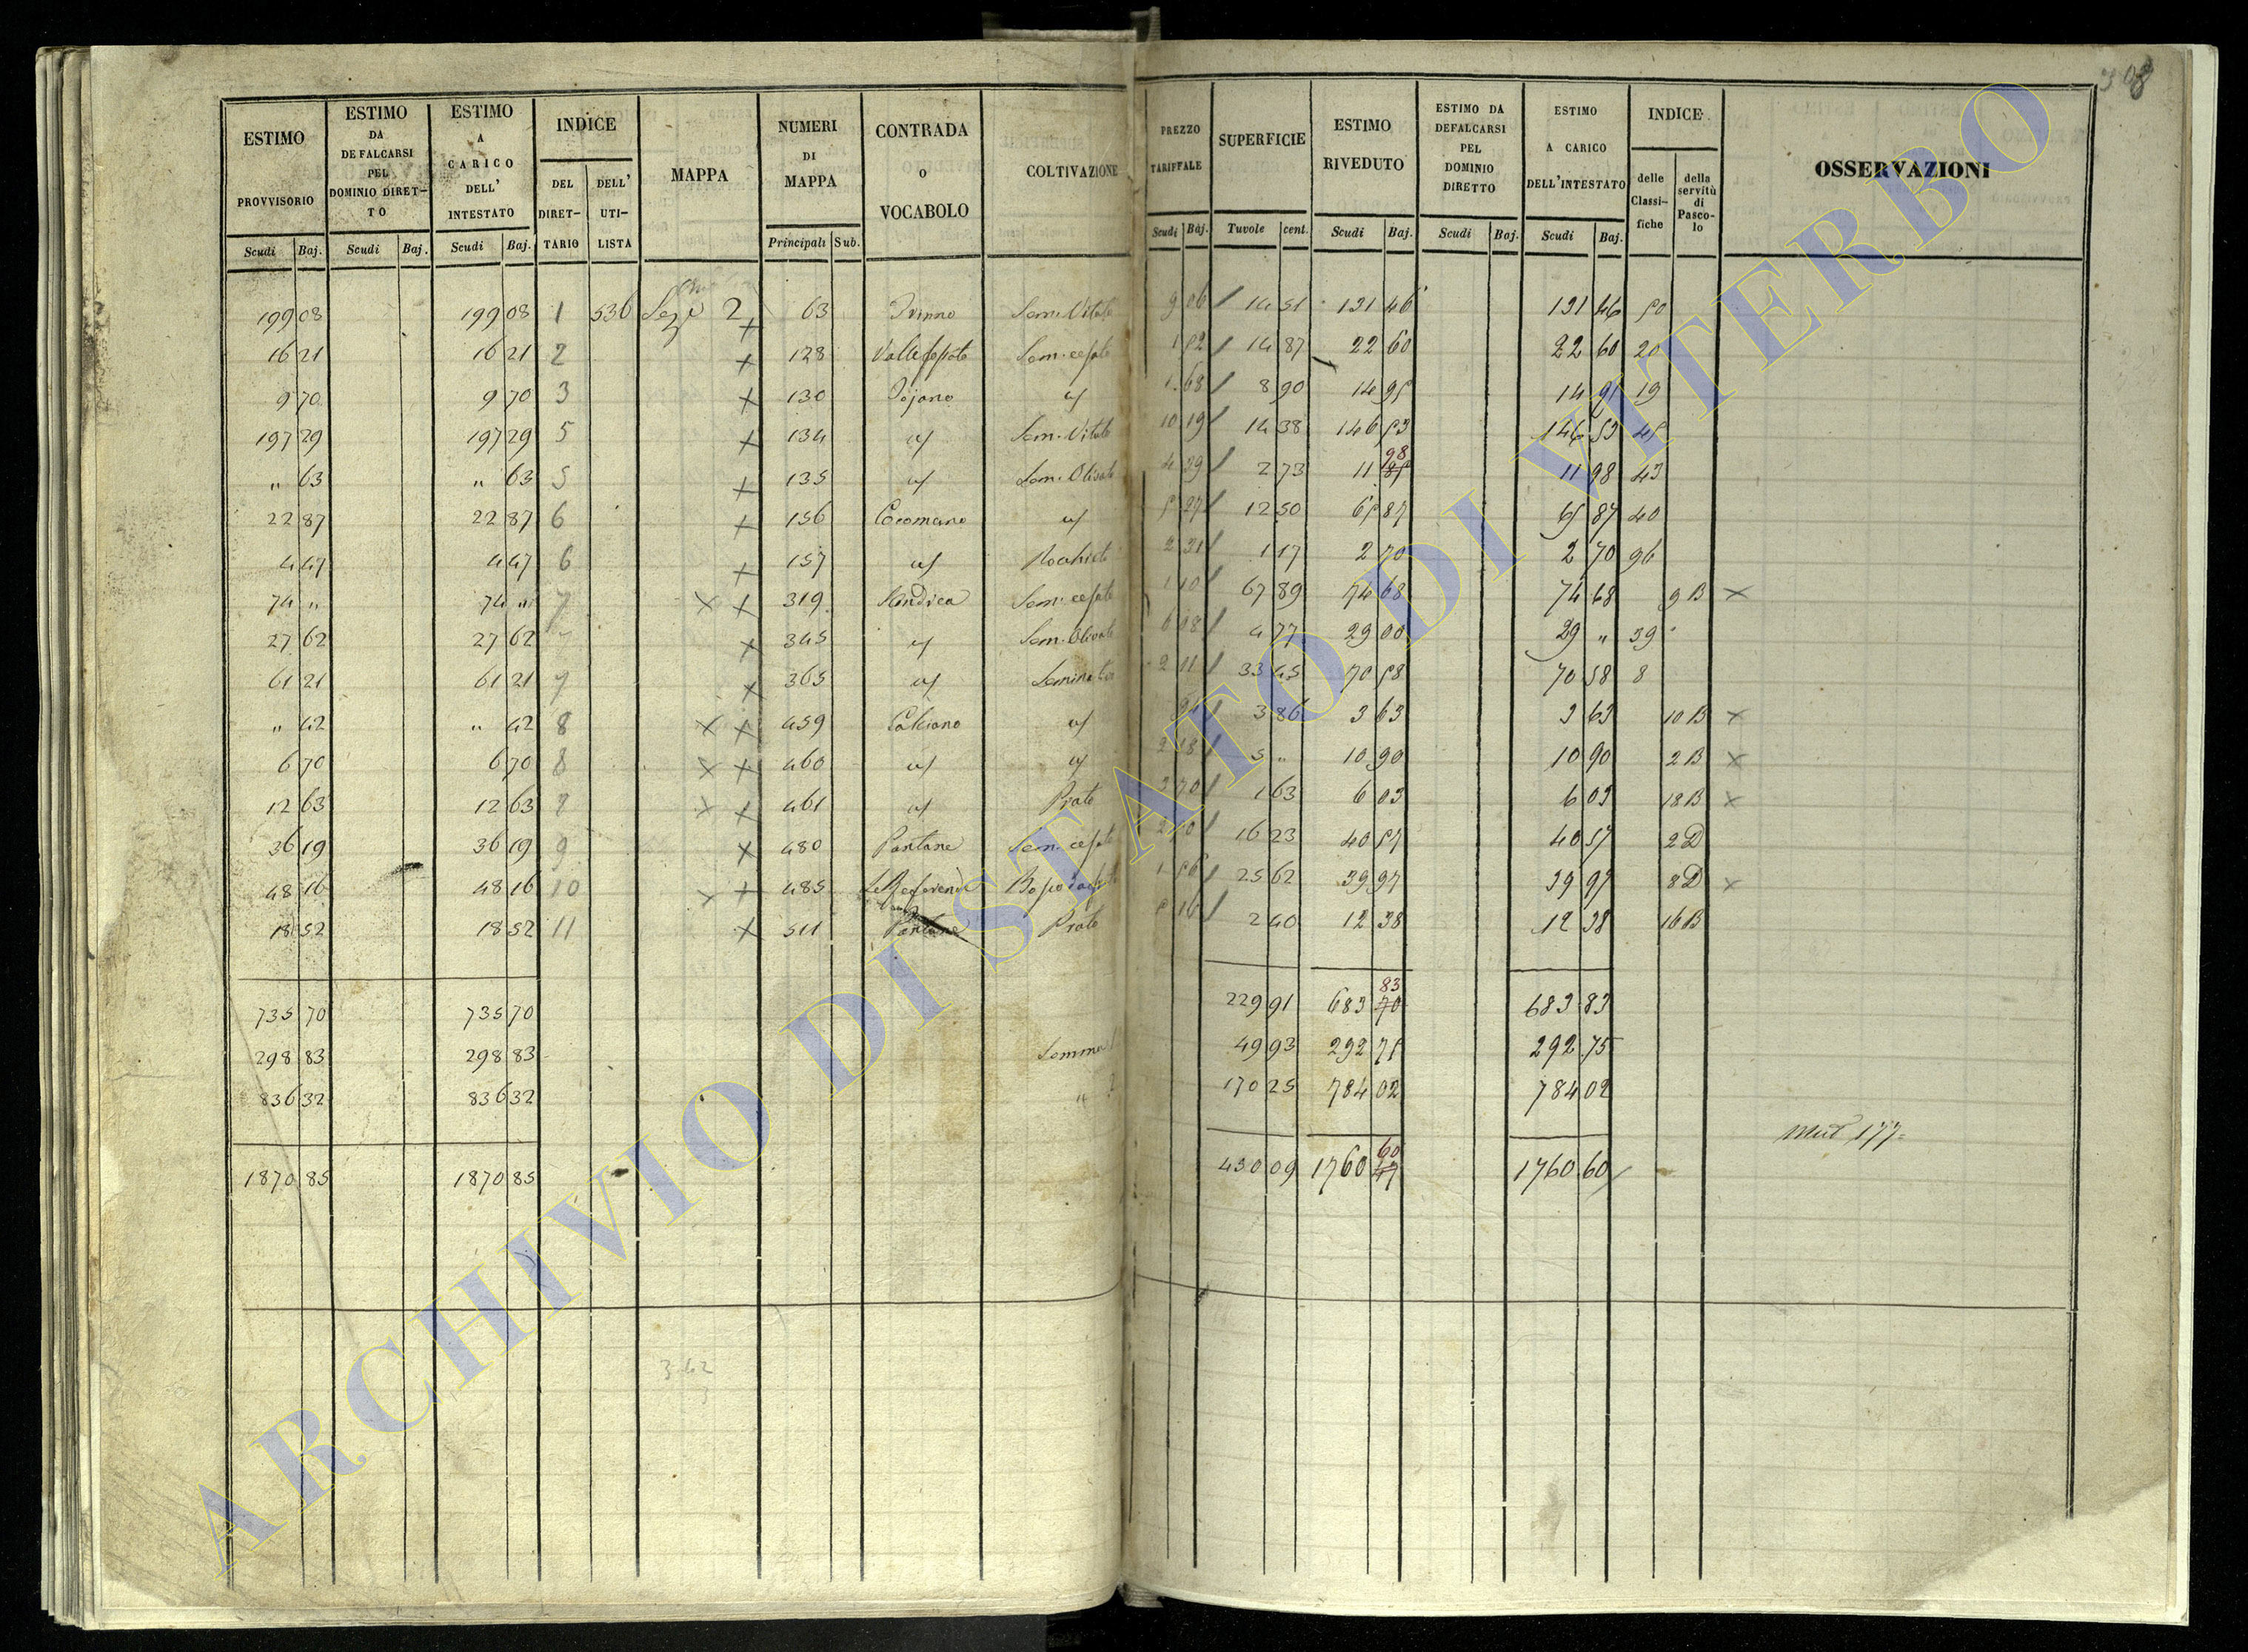 308
ESTIMO PROVVISORIO | ESTIMO DA DEFALCARSI PEL DOMINIO DIRET-TO | ESTIMO A CARICO DELL' INTESTATO | INDICE | MAPPA | NUMERI DI MAPPA | CONTRADA O VOCABOLO | COLTIVAZIONE | PREZZO TARIFFALE | SUPERFICIE | ESTIMO RIVEDUTO | ESTIMO DA DEFALCARSI PEL DOMINIO DIRETTO | ESTIMO A CARICO DELL'INTESTATO | INDICE | OSSERVAZIONI
DEL DIRET-TARIO | DELL' UTI-LISTA | delle Classi-fiche | della servitù di Pasco-lo
Scudi | Baj. | Scudi | Baj. | Scudi | Baj. | Principali | Sub. | Scudi | Baj. | Tavole | cent. | Scudi | Baj. | Scudi | Baj. | Scudi | Baj.
199 08 | 199 08 | 1 | 536 | Sez. 2 + | 63 | Sem. Vitato | 9 06 | 14 51 | 131 46 | 131 46 | 50
16 21 | 16 21 | 2 | + | 128 | 1 52 | 14 87 | 22 60 | 22 60 | 20
9 70 | 9 70 | 3 | + | 130 | Pojano | 1 68 | 8 90 | 14 95 | 14 95 | 19
197 29 | 197 29 | 5 | + | 134 | Sem. Vitato | 10 19 | 14 38 | 146 53 | 146 53 | 45
" 63 | " 63 | 5 | + | 135 | Sem. Olivato | 4 39 | 2 73 | 11 98 | 11 98 | 43
22 87 | 22 87 | 6 | + | 156 | 5 27 | 12 50 | 65 87 | 65 87 | 40
4 47 | 4 47 | 6 | + | 157 | 2 31 | 1 17 | 2 70 | 2 70 | 96
74 " | 74 " | 7 | × + | 319 | 1 10 | 67 89 | 74 68 | 74 68 | 9 B ×
27 62 | 27 62 | 7 | + | 345 | Sem. Olivato | 6 08 | 4 77 | 29 00 | 29 " | 39
61 21 | 61 21 | 7 | × | 365 | 2 11 | 33 45 | 70 58 | 70 58 | 8
" 42 | " 42 | 8 | × + | 459 | 94 | 3 86 | 3 63 | 3 63 | 10 B ×
6 70 | 6 70 | 8 | × + | 460 | 2 18 | 5 " | 10 90 | 10 90 | 2 B ×
12 63 | 12 63 | × + | 461 | Prato | 3 70 | 1 63 | 6 03 | 6 03 | 18 B ×
36 19 | 36 19 | 9 | × | 480 | Pantane | 2 50 | 16 23 | 40 57 | 40 57 | 2 D
48 16 | 48 16 | 10 | × + | 485 | 1 56 | 25 62 | 39 97 | 39 97 | 8 D ×
18 52 | 18 52 | 11 | × | 511 | Pantane | Prato | 5 16 | 2 40 | 12 38 | 12 38 | 16 B
735 70 | 735 70 | 229 91 | 683 70 83 | 683 83
298 83 | 298 83 | 49 93 | 292 75 | 292 75
836 32 | 836 32 | " | 170 25 | 784 02 | 784 02
1870 85 | 1870 85 | 430 09 | 1760 47 60 | 1760 60
Mut 177
3.62
3
ARCHIVIO DI STATO DI VITERBO